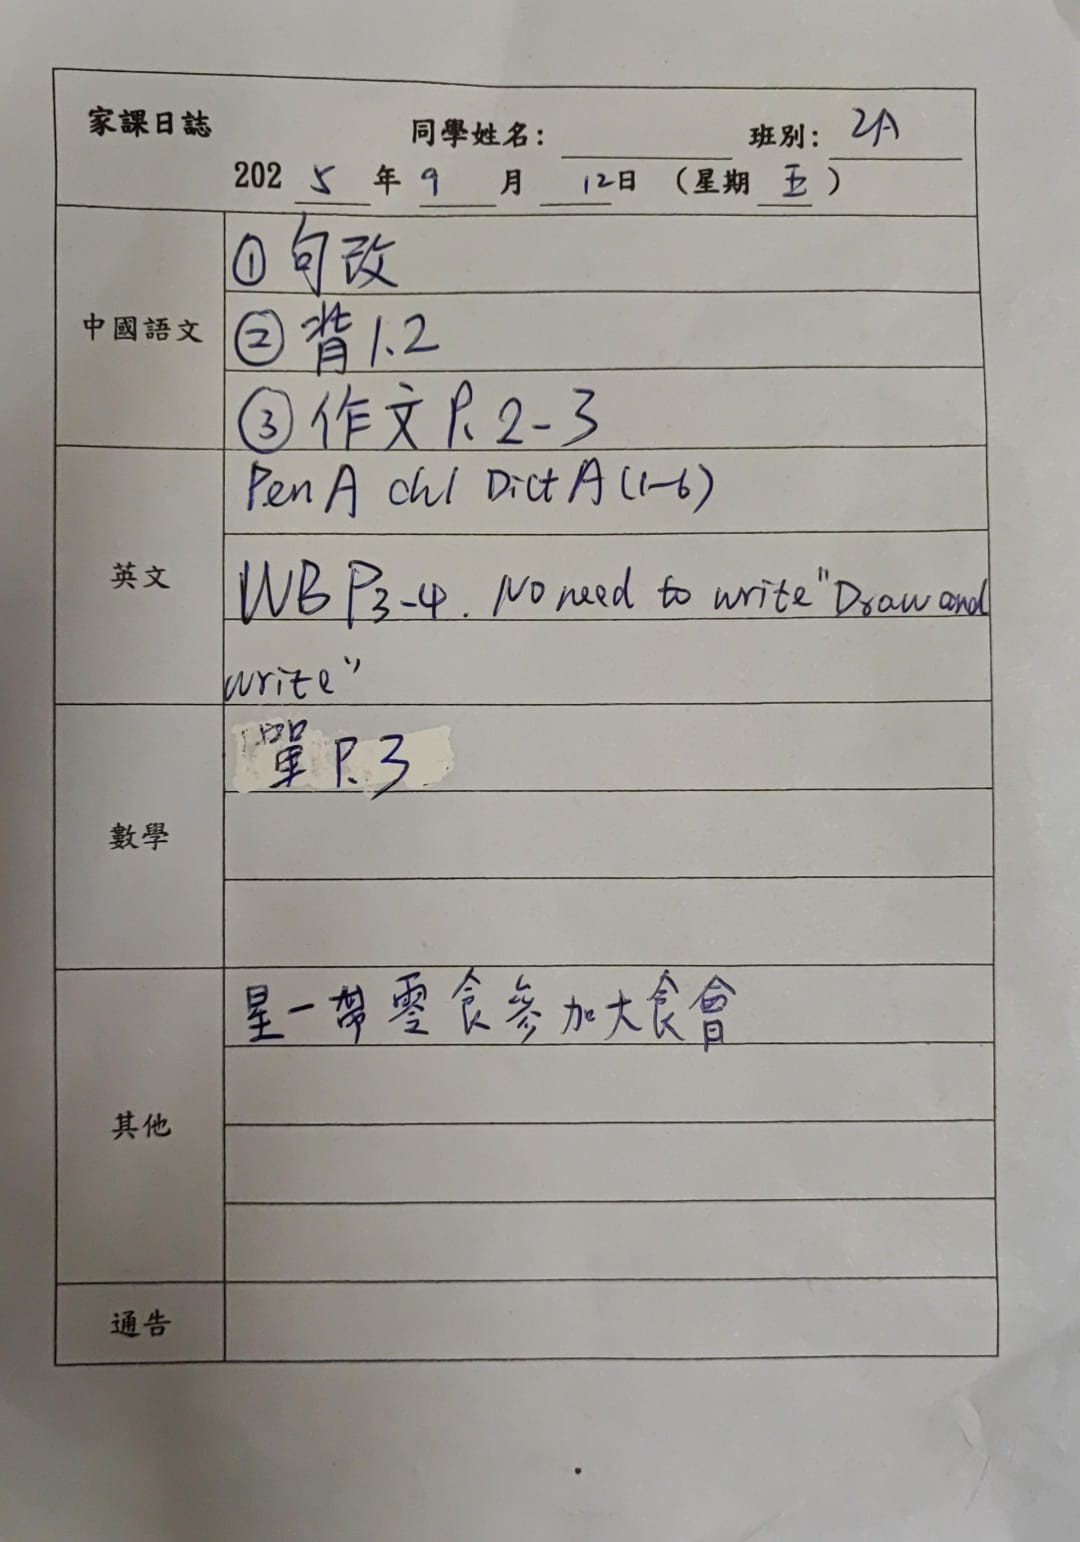 家課日誌 同學姓名： 班別： 2A
2025年9月12日（星期五）
中國語文
① 句改
② 背1.2
③ 作文P.2-3
英文
Pen A ch1 Dict A (1-6)
WB P3-4. No need to write "Draw and
write"
數學
單P.3
其他
星一帶零食參加大食會
通告